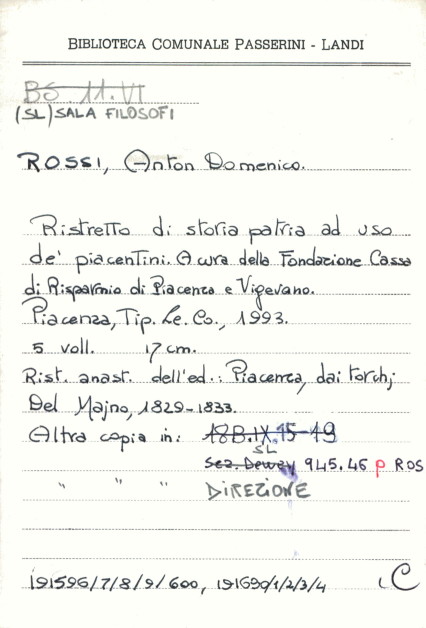 BIBLIOTECA COMUNALE PASSERINI - LANDI
BS. 11. VI
(SL) SALA FILOSOFI
ROSSI, Anton Domenico.
Ristretto di storia patria ad uso
de' piacentini. A cura della Fondazione Cassa
di Risparmio di Piacenza e Vigevano.
Piacenza, Tip. Le. Co., 1993.
5 voll. 17 cm.
Rist. anast. dell'ed.: Piacenza, dai torchj
Del Majno, 1829-1833.
Altra copia in: 18B.IX.15-19
SL
Sez. Dewey 945.46 p ROS
" " " DIREZIONE
191596/7/8/9/600, 191690/1/2/3/4 C